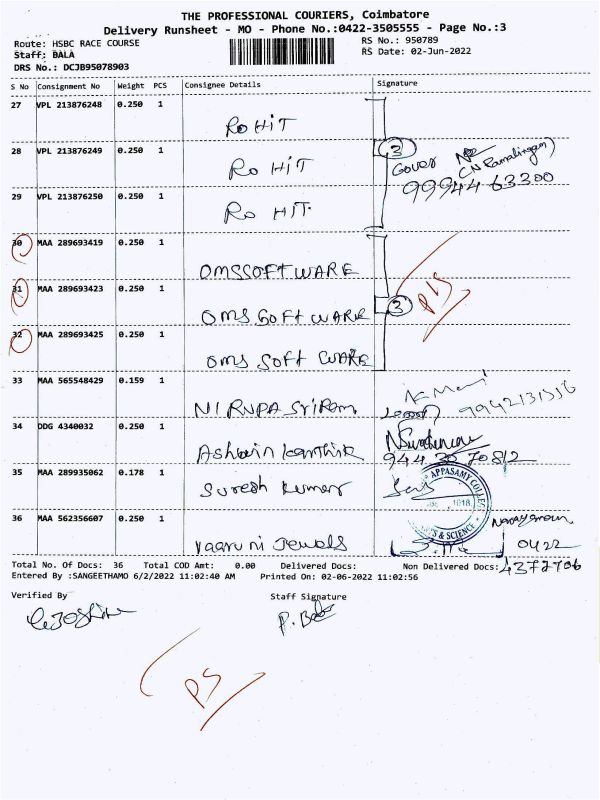 THE PROFESSIONAL COURIERS, Coimbatore
Delivery Runsheet - MO - Phone No.:0422-3505555 - Page No.:3
Route: HSBC RACE COURSE RS No.: 950789
Staff: BALA RS Date: 02-Jun-2022
DRS No.: DCJB95078903
S No Consignment No Weight PCS Consignee Details Signature
27 VPL 213876248 0.250 1
ROHIT
28 VPL 213876249 0.250 1 3
ROHIT Gover (N Ramalingam)
29 VPL 213876250 0.250 1 99944 63300
ROHIT
30 MAA 289693419 0.250 1
OMSSOFTWARE
31 MAA 289693423 0.250 1 3 P/S
OMS SOFTWARE
32 MAA 289693425 0.250 1
OMS SOFTWARE
33 MAA 565548429 0.159 1
NIRUPA Sriram
34 DDG 4340032 0.250 1
Ashwin karthik 944 30 70812
35 MAA 289935062 0.178 1
Suresh kumar APPASAMY COLLEGE
1018
ARTS & SCIENCE
36 MAA 562356607 0.250 1 Narayanan
Vaaruni Jewels 0422
Total No. Of Docs: 36 Total COD Amt: 0.00 Delivered Docs: Non Delivered Docs: 4372706
Entered By :SANGEETHAMO 6/2/2022 11:02:40 AM Printed On: 02-06-2022 11:02:56
Verified By Staff Signature
P. Bala
P/S